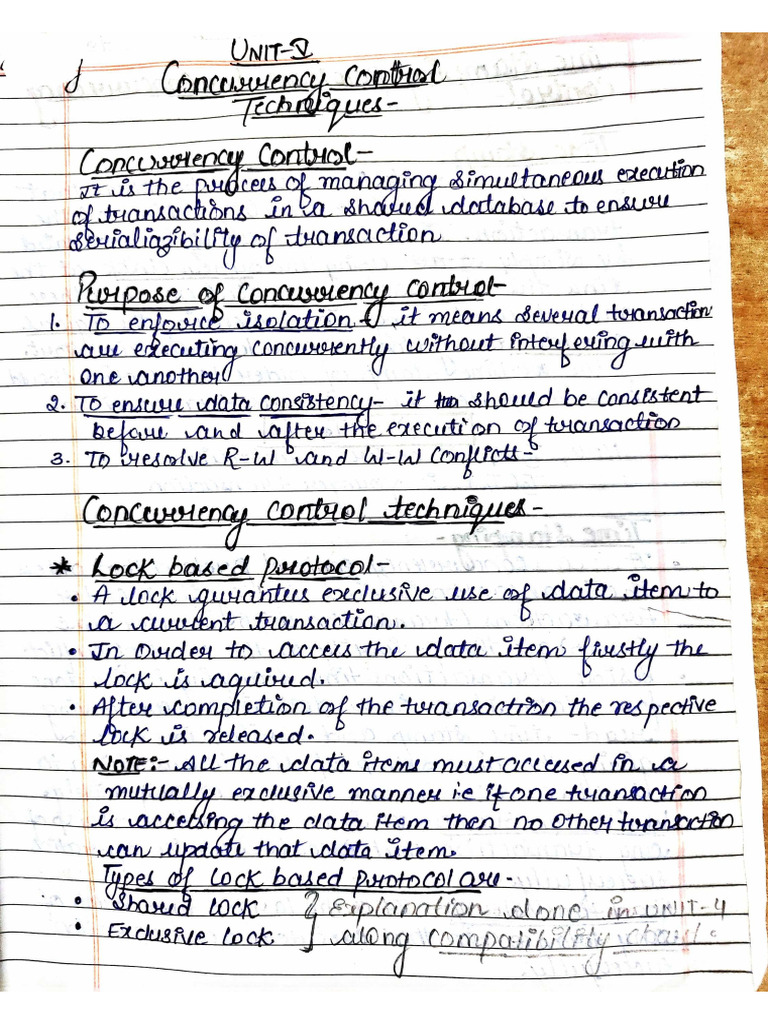 UNIT-V
Concurrency Control
Techniques-
Concurrency Control-
It is the procees of managing simultaneous execution
of transactions in a shared database to ensure
serialiazibility of transaction
Purpose of concurrency control-
1. To enforce isolation- it means several transaction
are executing concurrently without interfering with
one another
2. To ensure data consistency- it should be consistent
before and after the execution of transaction
3. To resolve R-W and W-W conflicts-
Concurrency control techniques-
* Lock based protocol-
• A lock gurantus exclusive use of data item to
a current transaction.
• In order to access the data item firstly the
lock is aquired.
• After completion of the transaction the respective
lock is released.
NOTE:- All the data items must accesed in a
mutually exclusive manner i.e if one transaction
is accessing the data item then no other transaction
can update that data item.
Types of lock based protocol are-
• Shared lock } Explanation done in UNIT-4
• Exclusive lock } along compatibility chart.